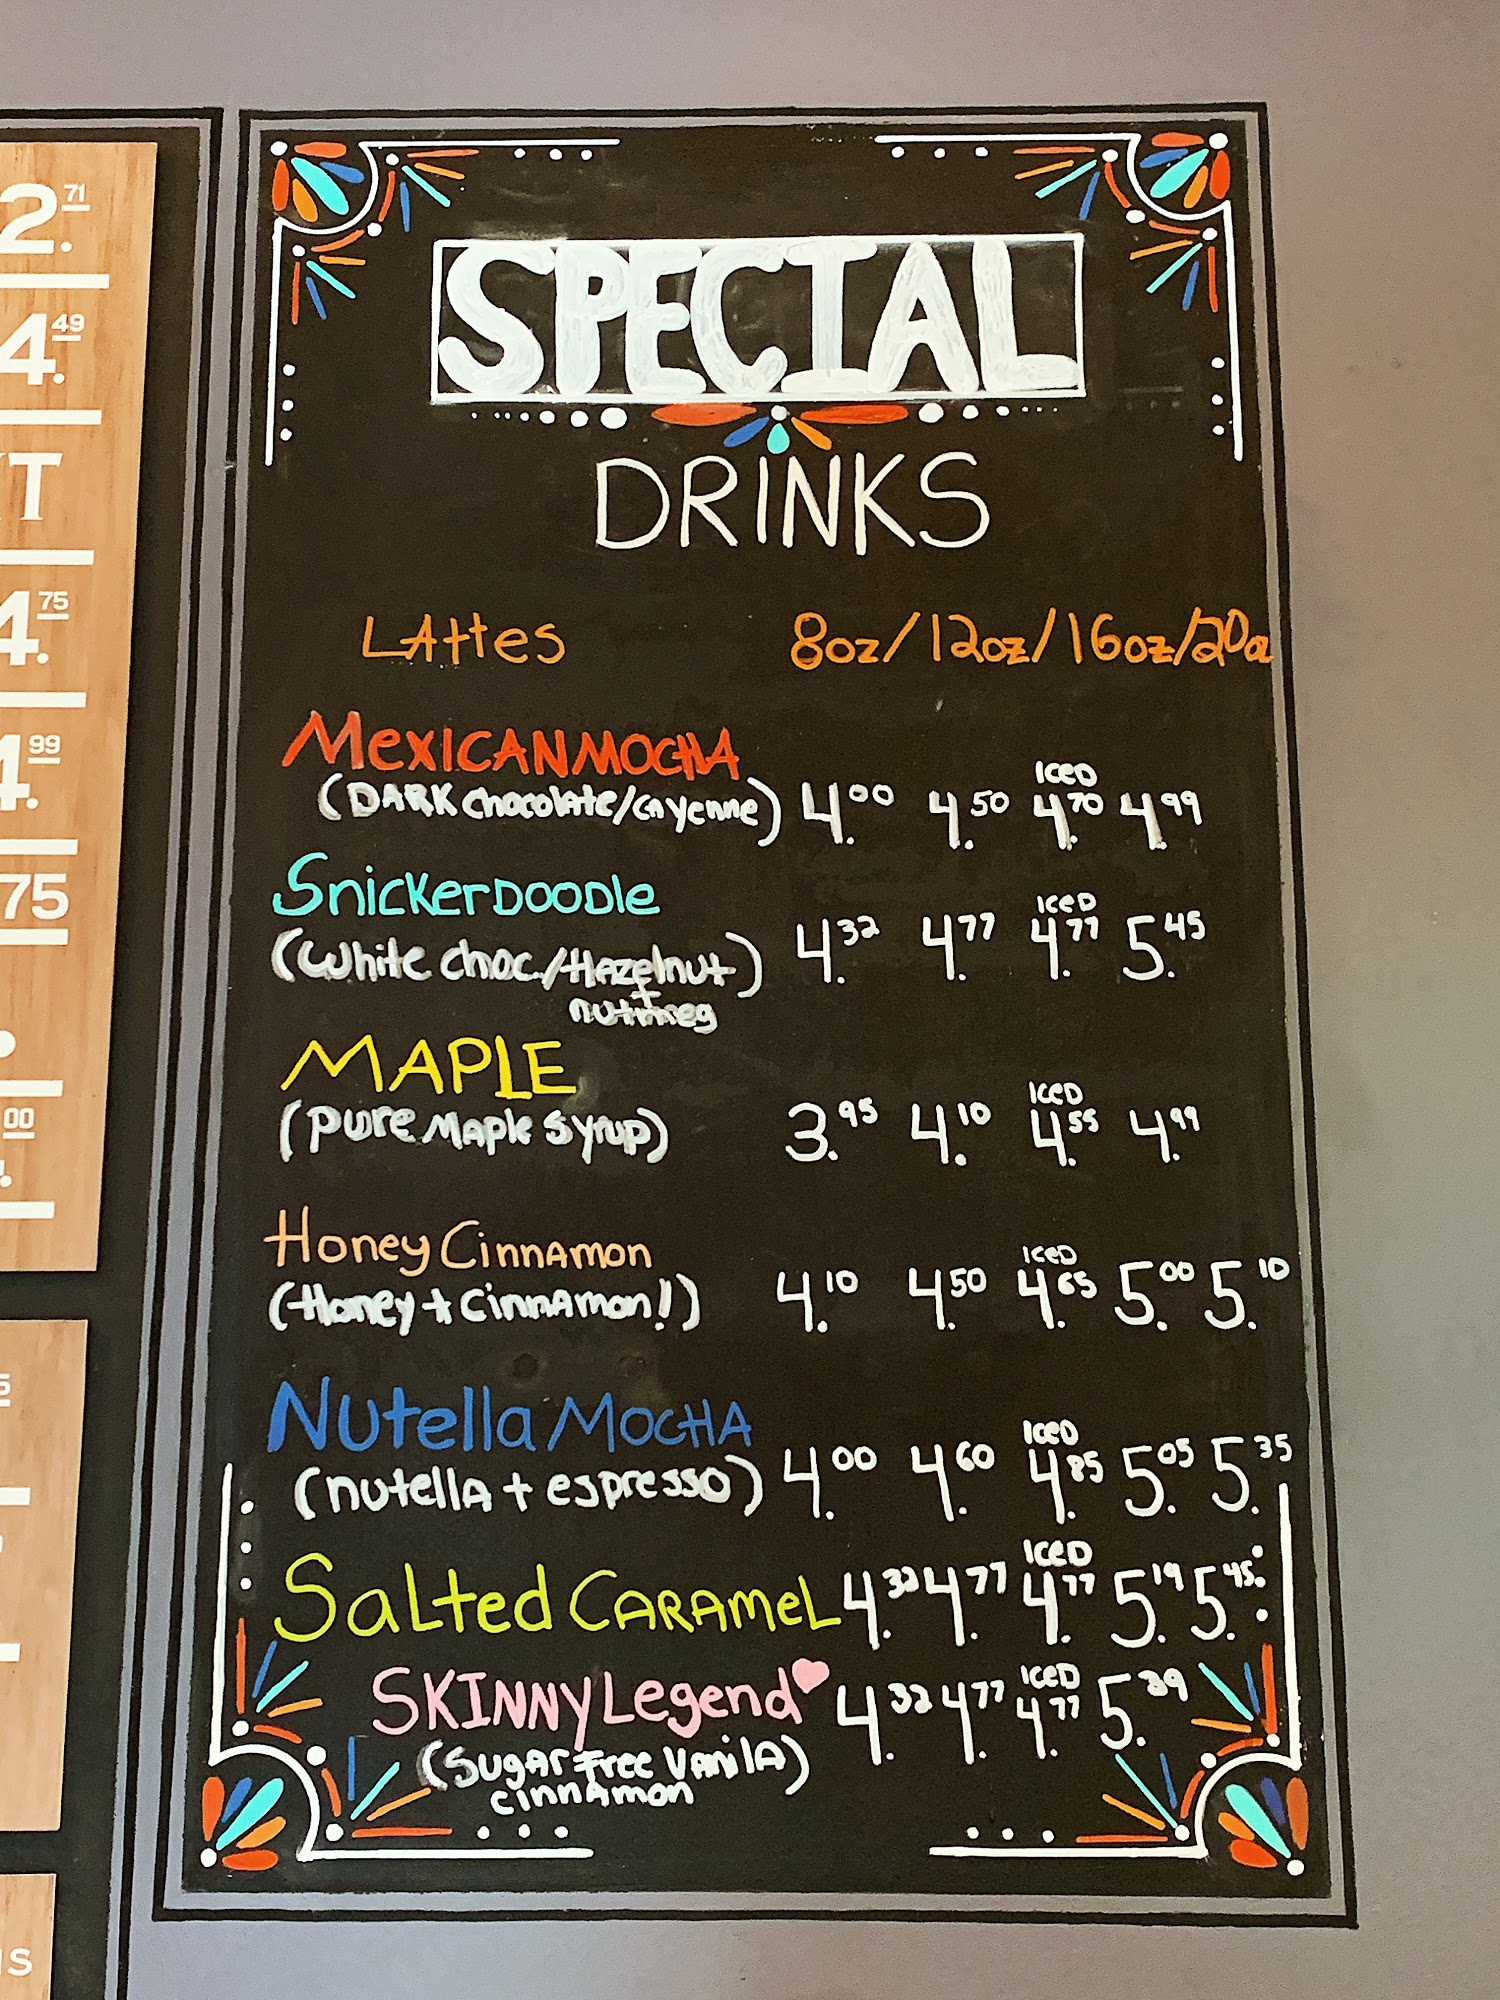 2.71
4.49
T
4.75
4.99
75
00
5
S
SPECIAL
DRINKS
LAttes 8oz/12oz/16oz/20oz
MexICAN MOCHA
Iced
(DARK Chocolate/Cayenne) 4.00 4.50 4.70 4.99
SnickerDOODle
Iced
(White choc./Hazelnut) 4.32 4.77 4.77 5.45
+
nutmeg
MAPLE
Iced
(pure Maple Syrup) 3.95 4.10 4.55 4.99
Honey CinnAmon
Iced
(Honey + CinnAmon!) 4.10 4.50 4.65 5.00 5.10
Nutella MOCHA
Iced
(nutellA + espresso) 4.00 4.60 4.85 5.05 5.35
Iced
Salted CARAMeL 4.32 4.77 4.77 5.19 5.45
Iced
SKINNY Legend 4.32 4.77 4.77 5.39
(Sugar Free VAnilA)
cinnAmon